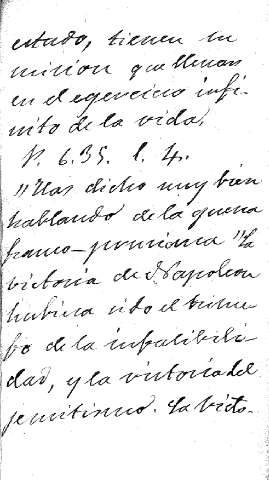 estado, tienen su
mision que llenar
en el egercicio infi-
nito de la vida.
P. 6.35. l. 4.
"Has dicho muy bien
hablando de la guerra
franco-prusiana "La
victoria de Napoleon
hubiera sido el triun
fo de la infalibili
dad, y la victoria del
jesuitismo. La victo-